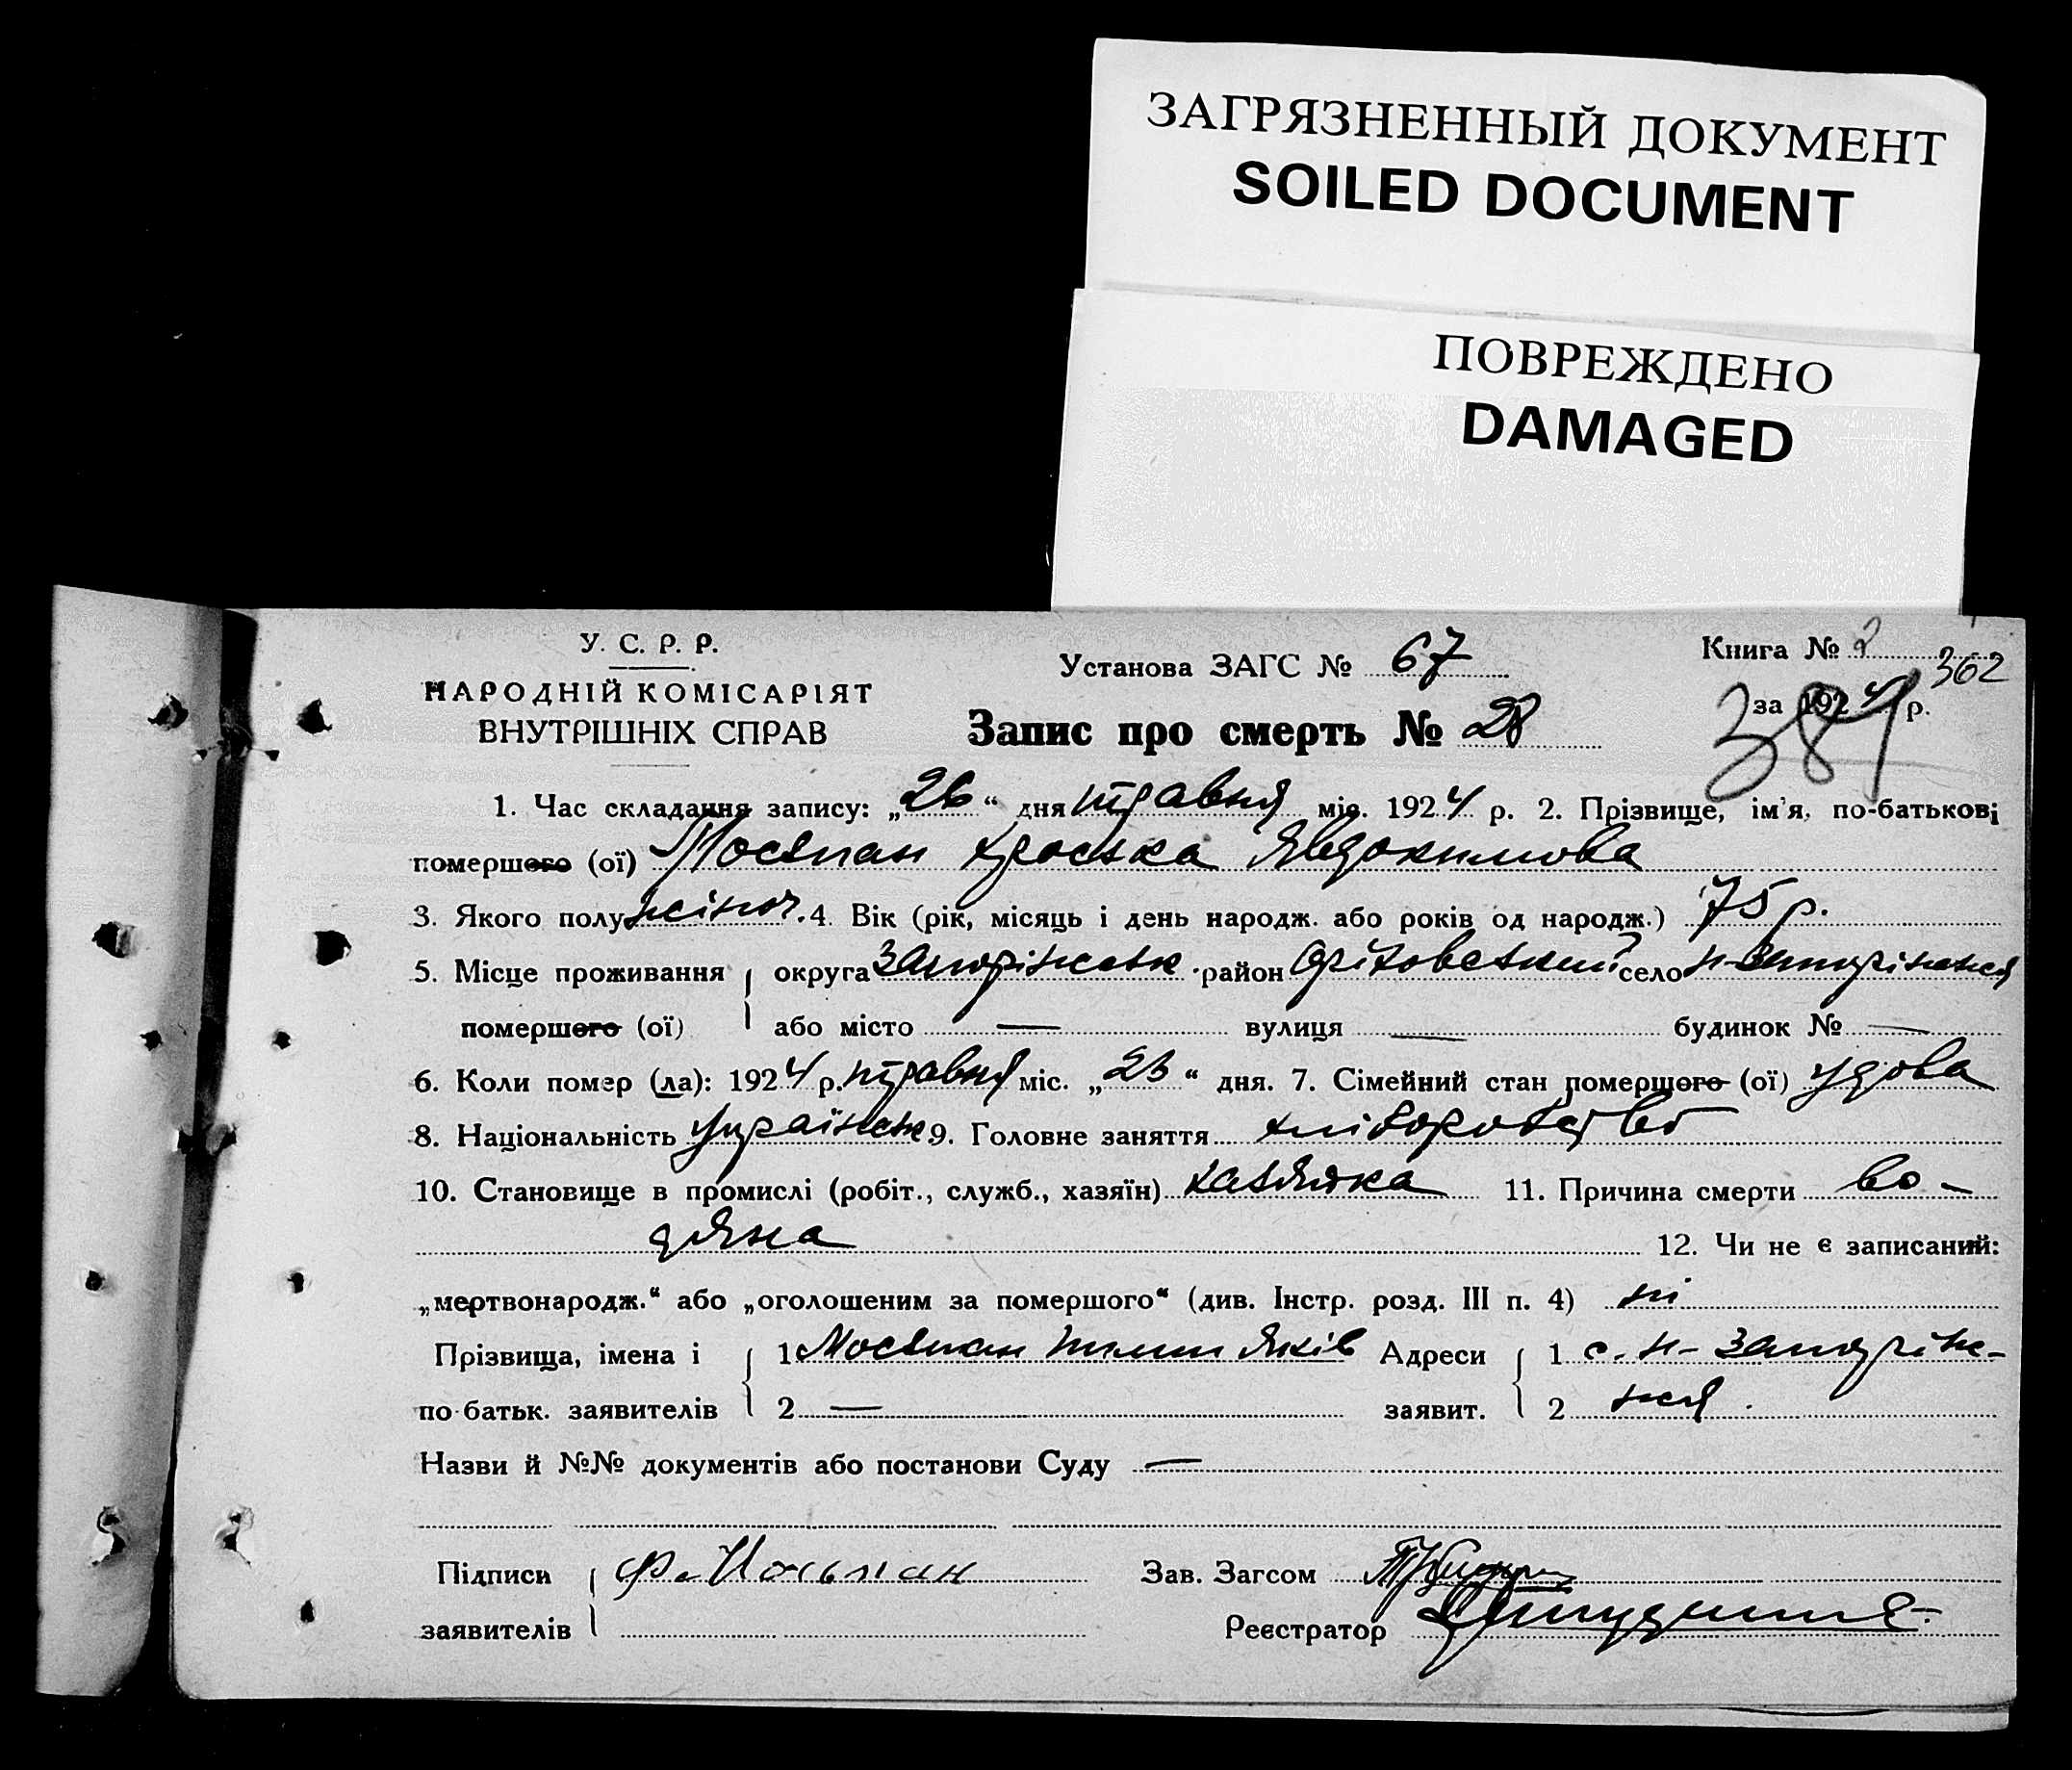 ЗАГРЯЗНЕННЫЙ ДОКУМЕНТ
SOILED DOCUMENT
ПОВРЕЖДЕНО
DAMAGED
У. С. Р. Р.
НАРОДНІЙ КОМІСАРІЯТ
ВНУТРІШНІХ СПРАВ
Установа ЗАГС № 67
Книга № 2
362
за 1924 р.
384
Запис про смерть № 28
1. Час складання запису: „26“ дня травня міс. 1924 р. 2. Прізвище, ім'я, по-батькові
помершого (ої) Мостпан Хроська Явдокимова
3. Якого полу жіноч. 4. Вік (рік, місяць і день народж. або років од народж.) 75 р.
5. Місце проживання округа Запоріжськ район Оріховський село Н-Запоріжжя
помершого (ої) або місто — вулиця — будинок № —
6. Коли помер (ла): 1924 р. травня міс. „23“ дня. 7. Сімейний стан помершого (ої) удова
8. Національність українськ 9. Головне заняття хліборобство
10. Становище в промислі (робіт., служб., хазяїн) хазяйка 11. Причина смерти во-
дяна 12. Чи не є записаний:
„мертвонародж.“ або „оголошеним за помершого“ (див. Інстр. розд. III п. 4) ні
Прізвища, імена і 1 Мостпан Яків Адреси 1 с. Н-Запоріж-
по-батьк. заявителів 2 — заявит. 2 жя.
Назви й №№ документів або постанови Суду —
Підписи Ф. Зав. Загсом
заявителів Реєстратор